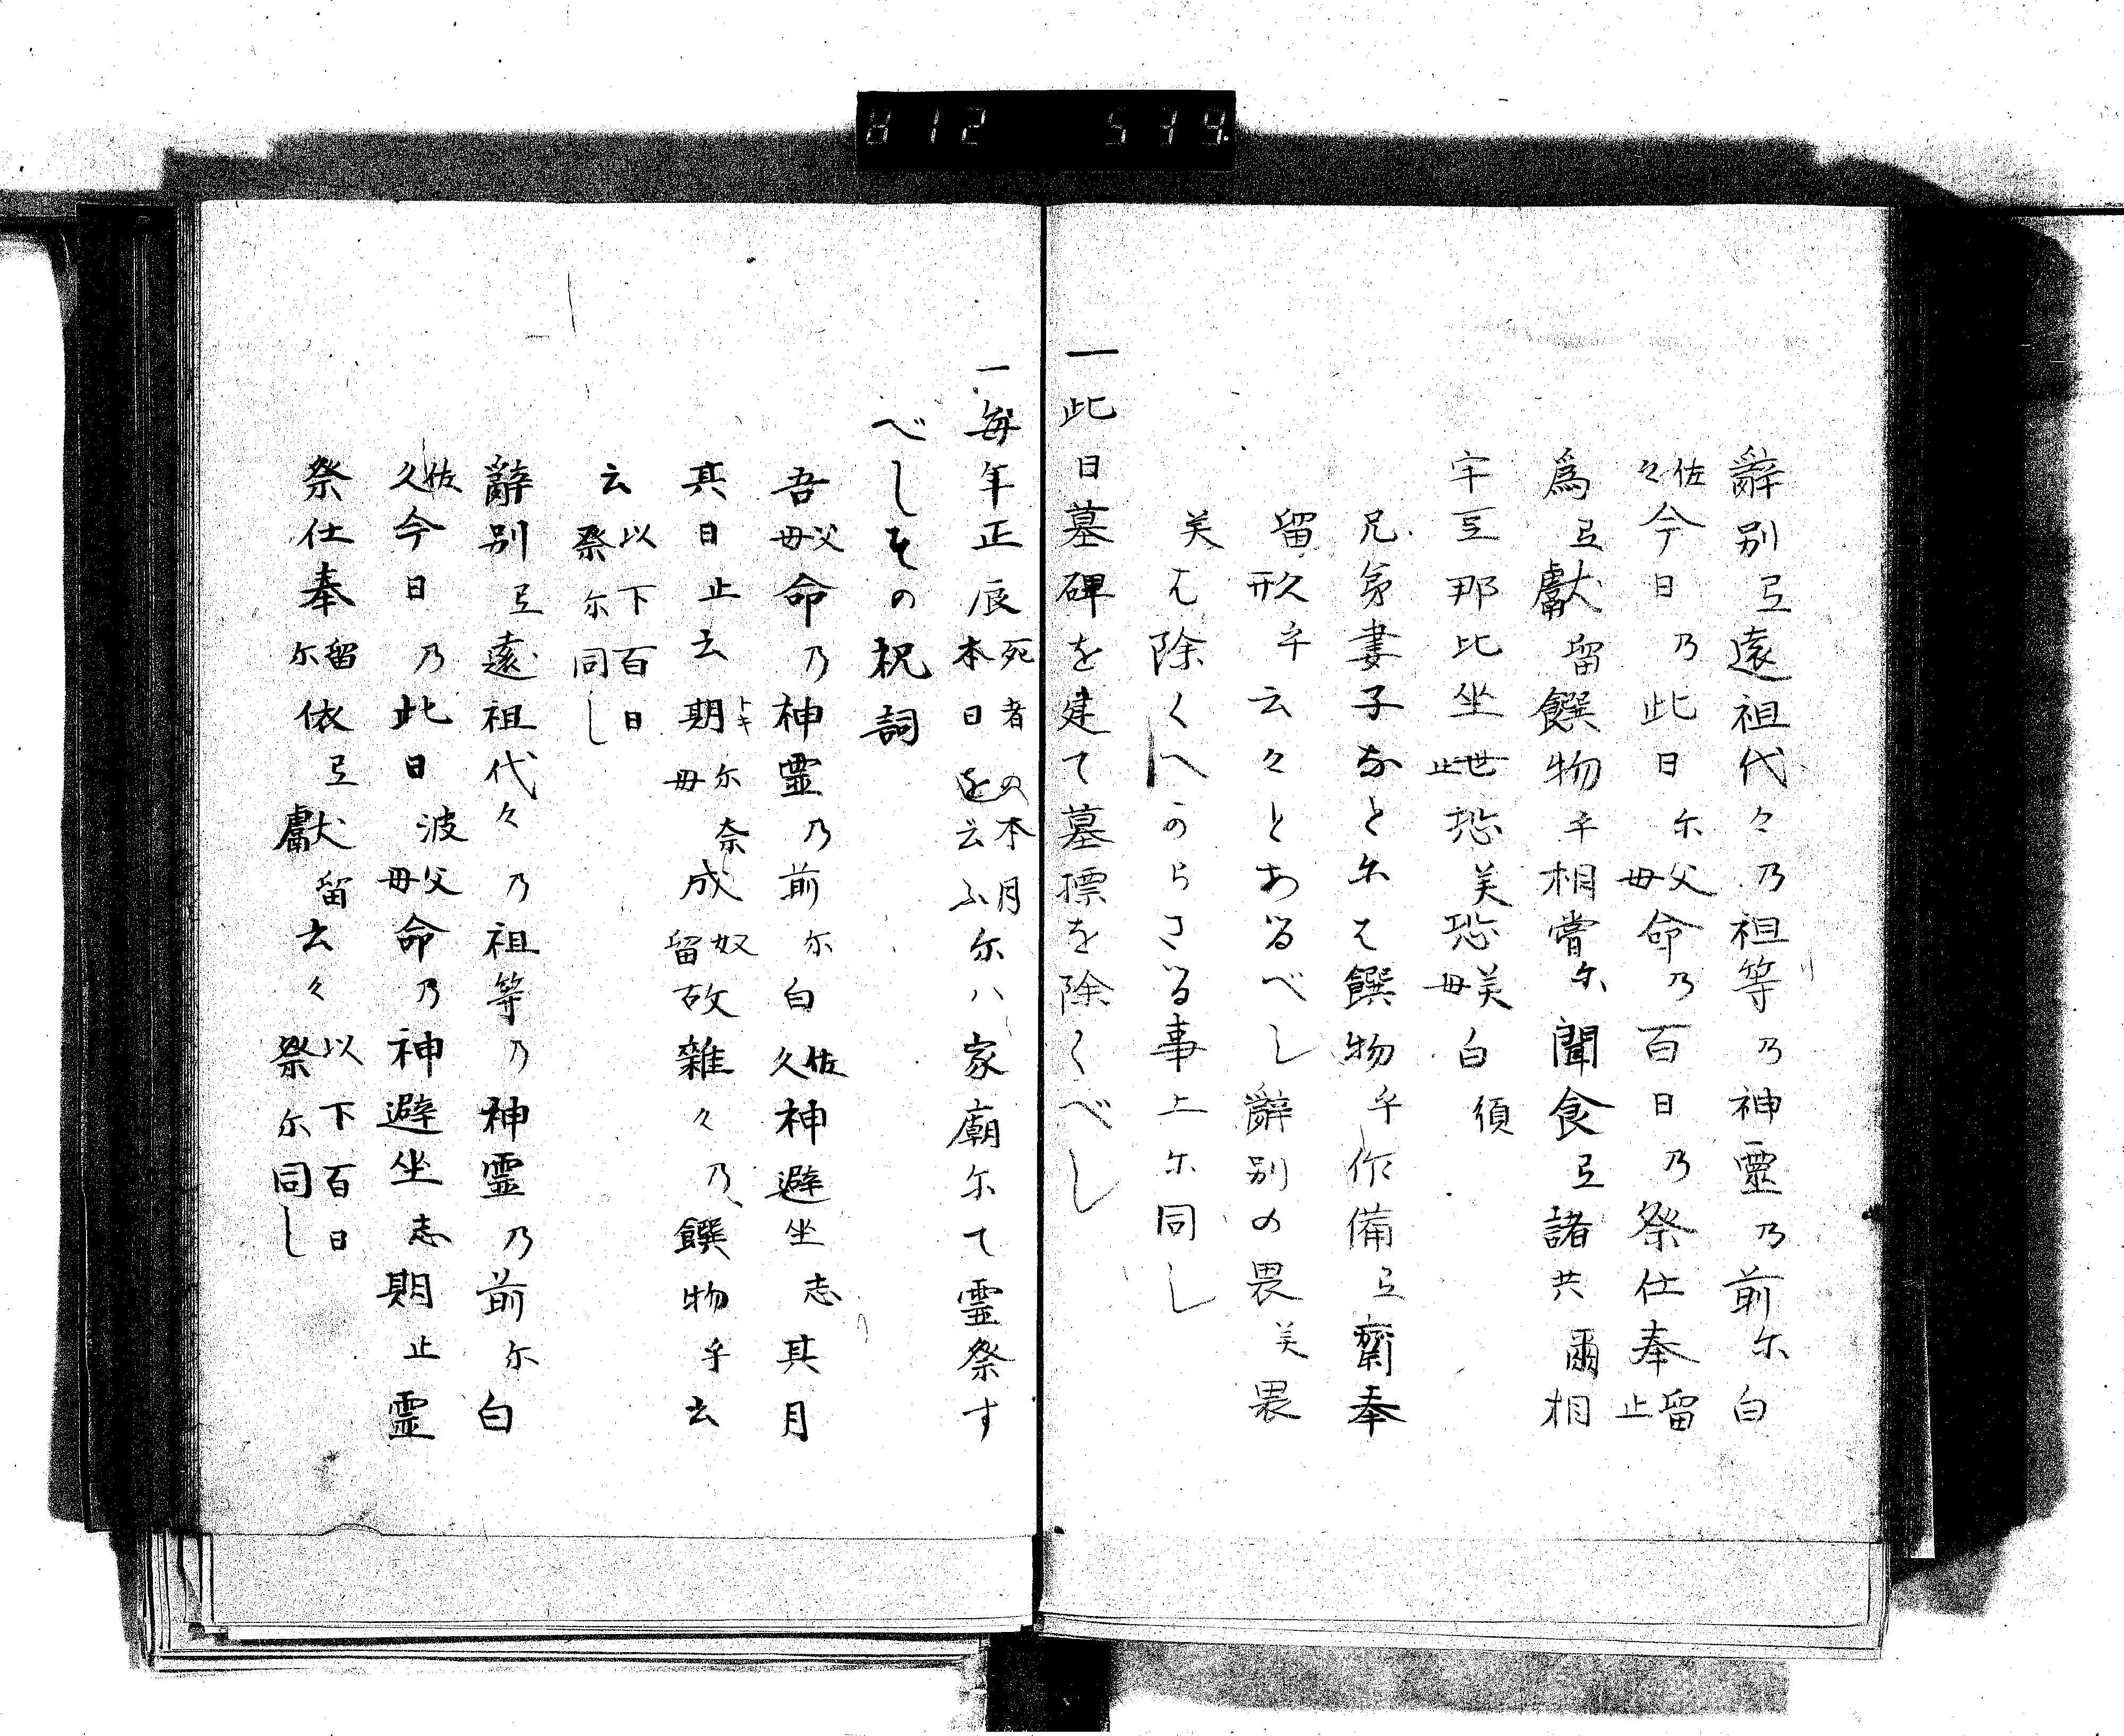 辭別弖遠祖代々乃祖等乃神靈乃前尓白
佐久今日乃此日尓父母命乃百日乃祭仕奉留止
為弖獻留饌物乎相嘗尓聞食弖諸共爾相
宇豆那比坐世止恐美恐美母白須
兄弟妻子なと尓は饌物乎作備弖齋奉
留形乎云々とあるべし辭別の畏美畏
美は除くへからさる事上尓同し
一此日墓碑を建て墓標を除くべし
一毎年正辰死者の本月本日を云ふ尓ハ家廟尓て霊祭す
べしその祝詞
吾父母命乃神霊乃前尓白佐久神避坐志其月
其日止云期トキ尓母奈成奴留故雜々乃饌物乎云
云以下百日祭尓同し
辭別弖遠祖代々乃祖等乃神霊乃前尓白
佐久今日乃此日波父母命乃神避坐志期止霊
祭仕奉留尓依弖獻留云々以下百日祭尓同し
812 5